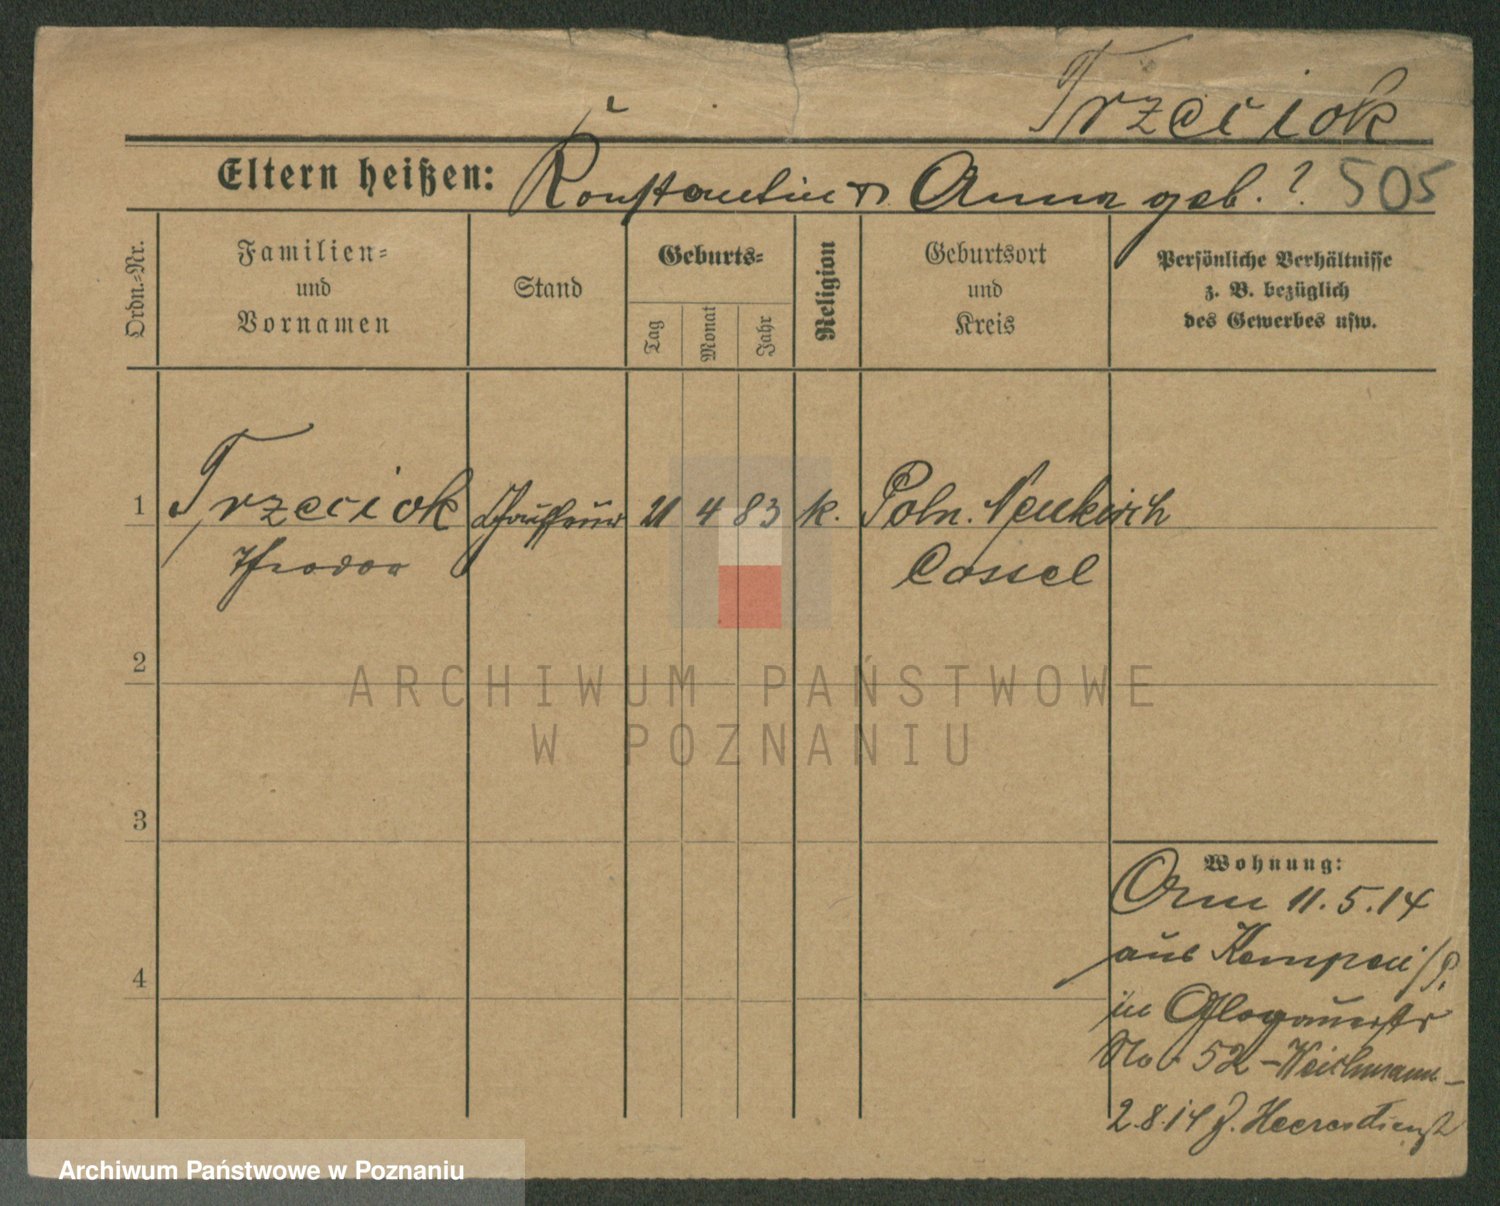 Trzeciok
Eltern heißen: Konstantin u. Anna geb. ?. 505
Ordn.-Nr.
Familien-
und
Vornamen
Stand
Geburts-
Tag
Monat
Jahr
Religion
Geburtsort
und
Kreis
Persönliche Verhältnisse
z. B. bezüglich
des Gewerbes usw.
1 Trzeciok Chauffeur 21 4 83 k. Poln. Neukirch
Theodor Cossel
2
ARCHIWUM PAŃSTWOWE
W POZNANIU
3
Wohnung:
Am 11.5.14
aus Kempen i/P.
in Glogauerstr
No 52 - Weichmann -
2.8.14 z. Heeresdienst
4
Archiwum Państwowe w Poznaniu